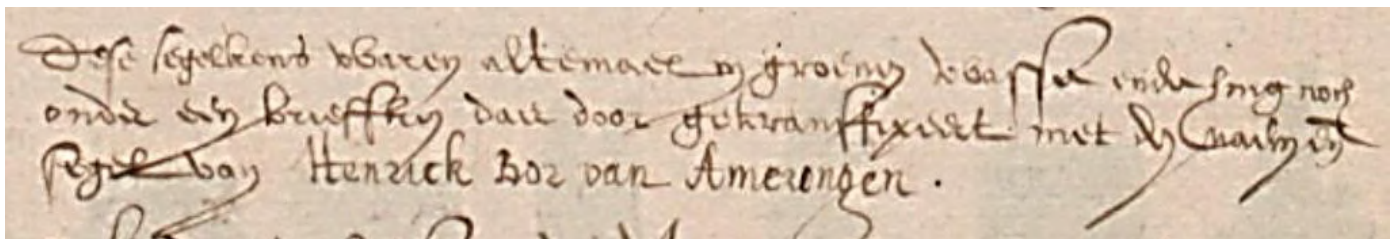 Dese segelkens waren altemael in groenen wasse ende hing noch
onder een brieffken daer door getransfixeert met den naem en
segel van Henrick Bor van Amerongen.